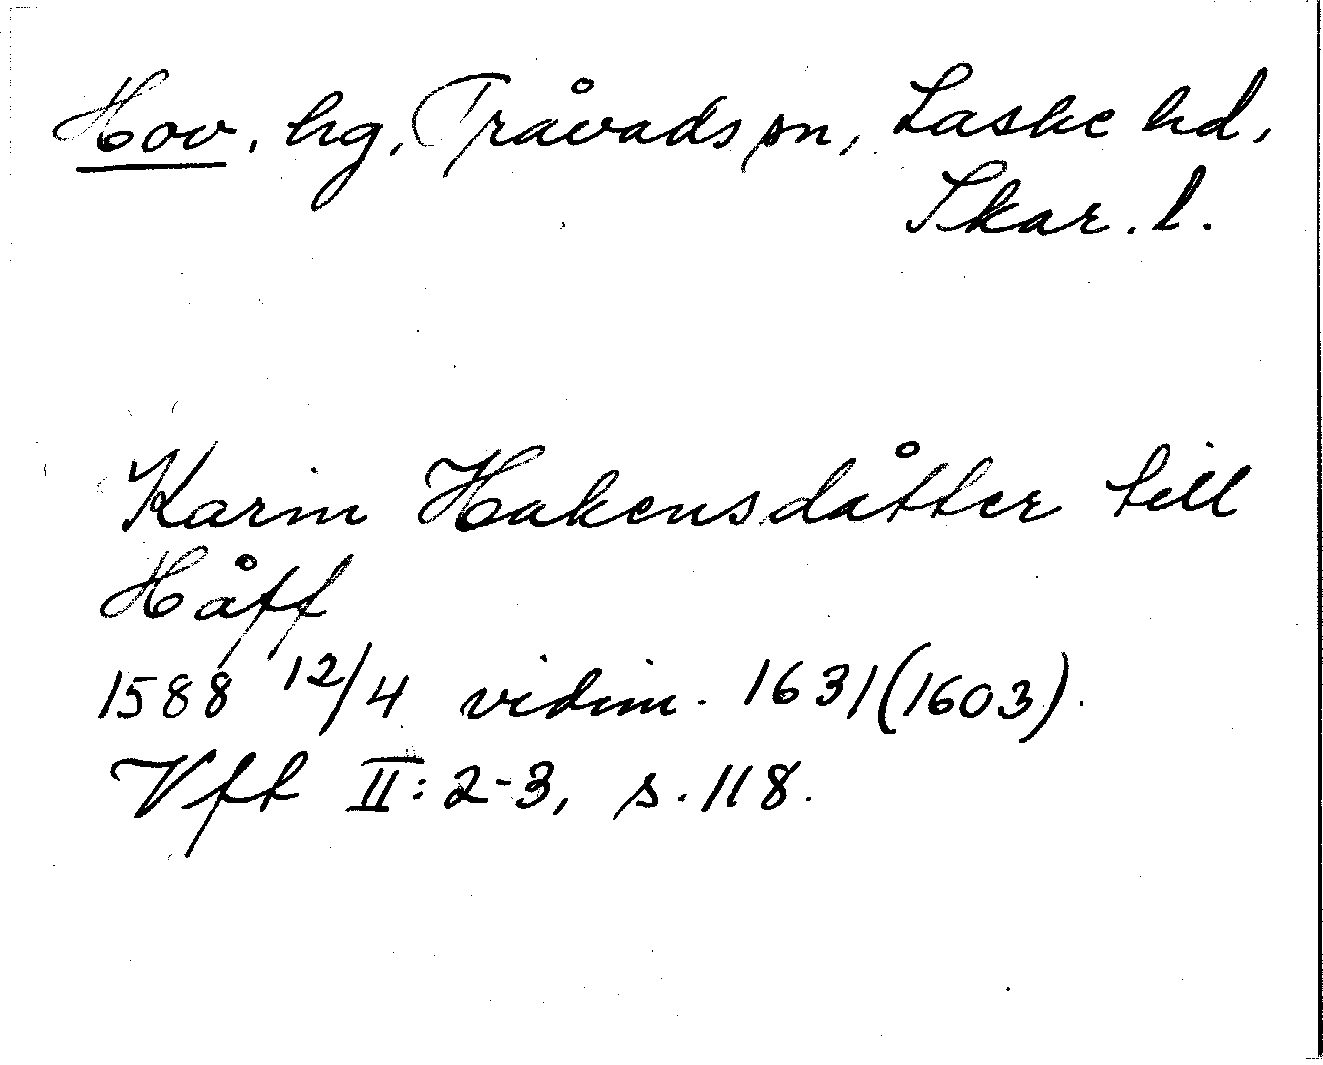 Hov, hg, Tråvads sn, Laske hd,
Skar. l.
Karin Hakensdåtter till
Håff
1588 12/4 vidim. 1631(1603).
Vft II: 2-3, s. 118.